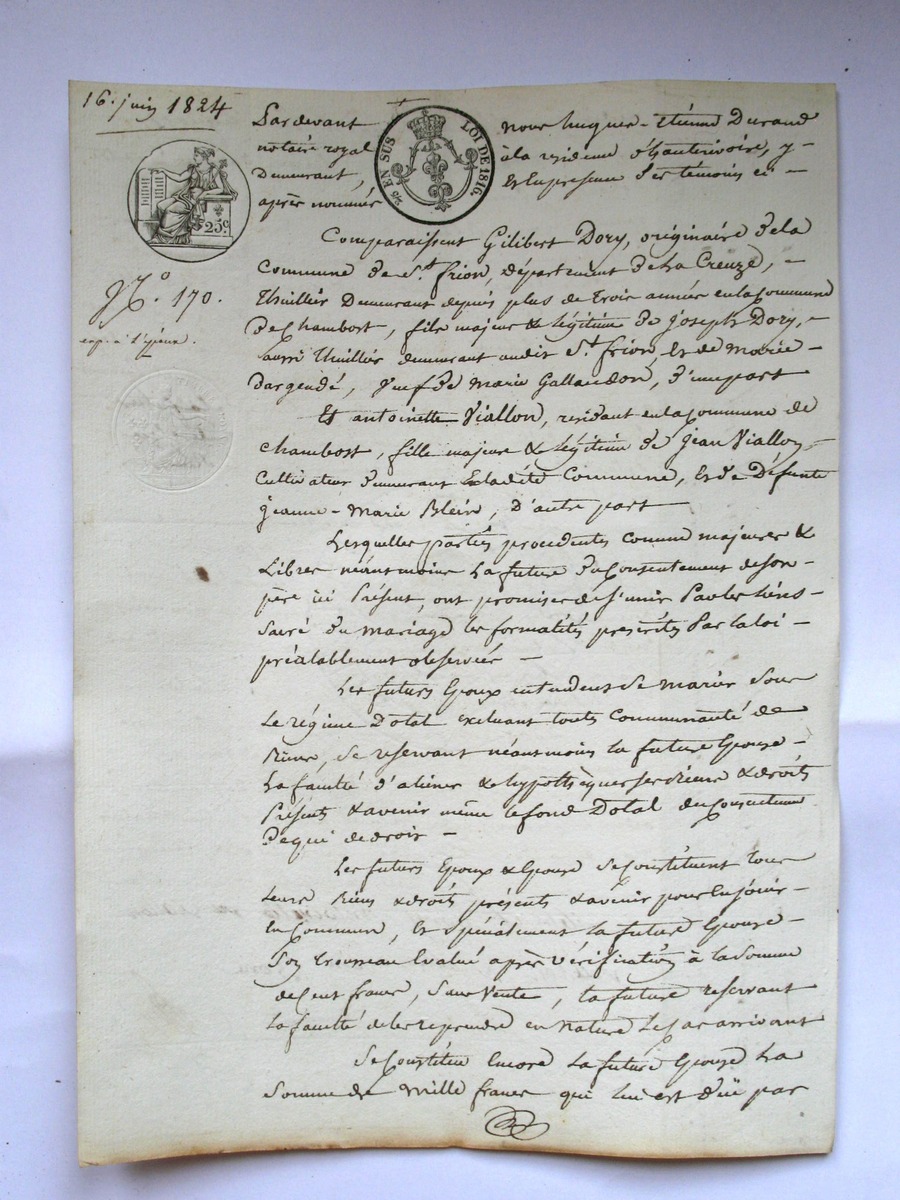 16. juin 1824
Pardevant nous hugues-étienne Durand
notaire royal à la residence d'hauterivoire, y-
Demeurant, Et En presence des témoins ci-
après nommés
EN SUS LOI DE 1816.
25c
Comparaissent Gilibert Dory, originaire de la
Commune de St. frion, département de La Creuze, -
thuillier Demeurant depuis plus de trois années en la Commune
de Chambost, fils majeur & légitime de joseph Dory, -
aussi thuillier demeurant audit St. frion, Et de marie-
Dargendé, veuf de marie Gallaudon, d'une part
No. 170.
Et antoinette Viallon, residant en la Commune de
chambost, fille majeure & légitime de jean Viallon
Cultivateur demeurant Ladite Commune, Et de Défunte
jeanne-marie Blein, D'autre part
Lesquelles parties procedentes comme majeures &
Libres néantmoins La future du Consentement de son
père ici Présent, ont promises de s'unir Par les liens
Sacré du mariage les formalités prescrites Par la loi -
préalablement observées -
Les futurs Epoux entendent se marier Sous
Le régime Dotal excluant toute Communauté de
Biens, se reservant néantmoins la future Epouse -
La faculté d'aliener & hypothèquer ses Biens & droits
Présents & avenir même le fond Dotal du Consentement
de qui de droit -
Les futurs Epoux & Epouse se Constituent tous
leurs Biens & droits présents & avenir pour En jouir -
En Commun, Et Spécialement la future Epouse -
Son trousseau Evalué après vérification à la Somme
de Cent francs, Sans Vente, la future reservant
La faculté de les reprendre en nature Le Cas arrivant
Se Constitue Encore La future Epouse La
Somme de mille francs qui lui est düe par